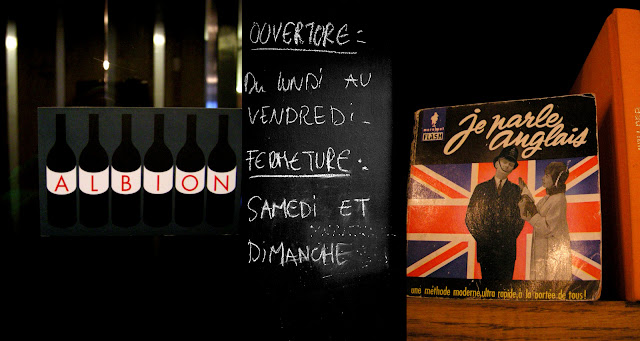 ALBION
OUVERTURE :
DU LUNDI AU
VENDREDI -
FERMETURE :
SAMEDI ET
DIMANCHE
marabout
FLASH
je parle
anglais
une méthode moderne, ultra rapide, à la portée de tous !